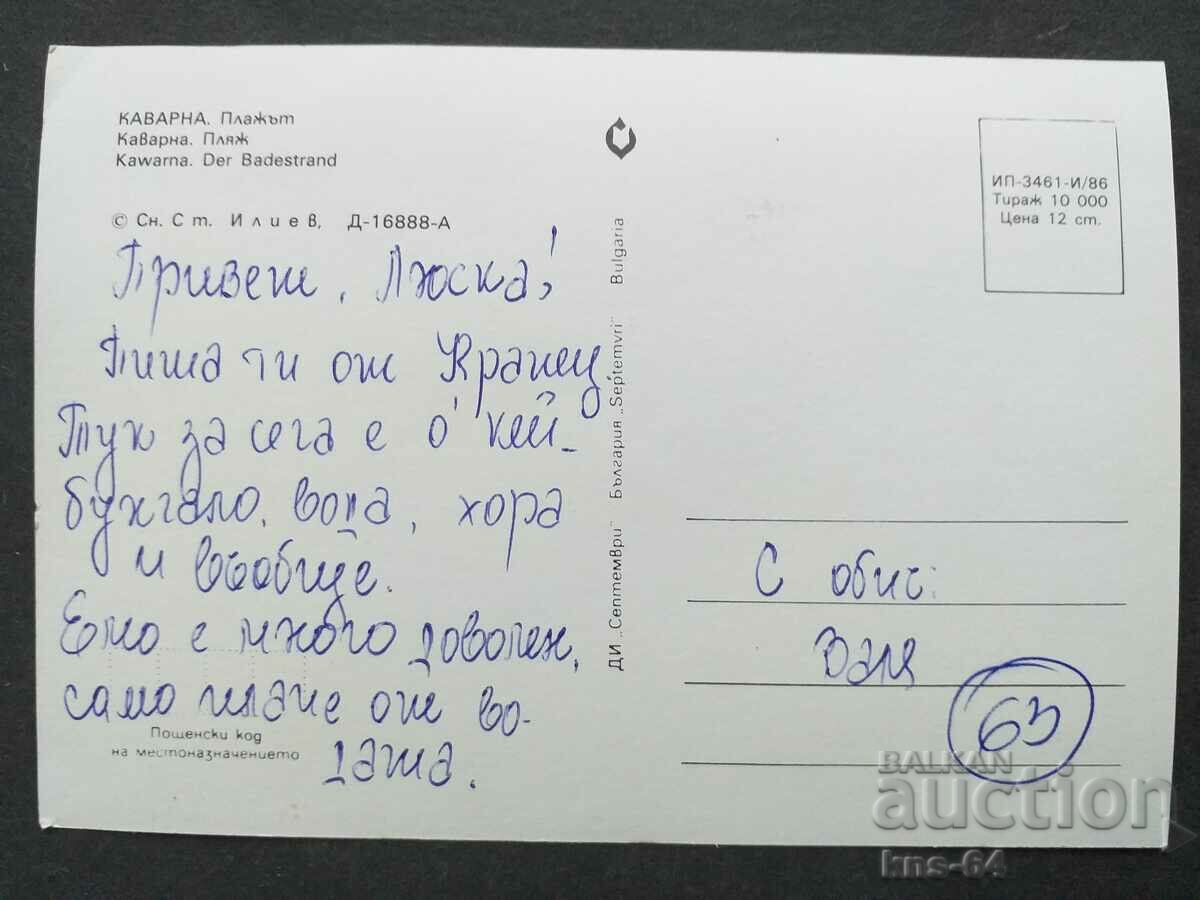 КАВАРНА. Плажът
Каварна. Пляж
Kawarna. Der Badestrand
© Сн. Ст. Илиев, Д-16888-А
Привет, Люска!
Пиша ти от Кранец.
Тук за сега е о'кей -
бунгало, вода, хора
и въобще.
Емо е много доволен,
само плаче от во-
дата.
Пощенски код
на местоназначението
ДИ „Септември" България „Septemvri" Bulgaria
ИП-3461-И/86
Тираж 10 000
Цена 12 ст.
С обич:
Валя
63
BALKAN
auction
kns-64